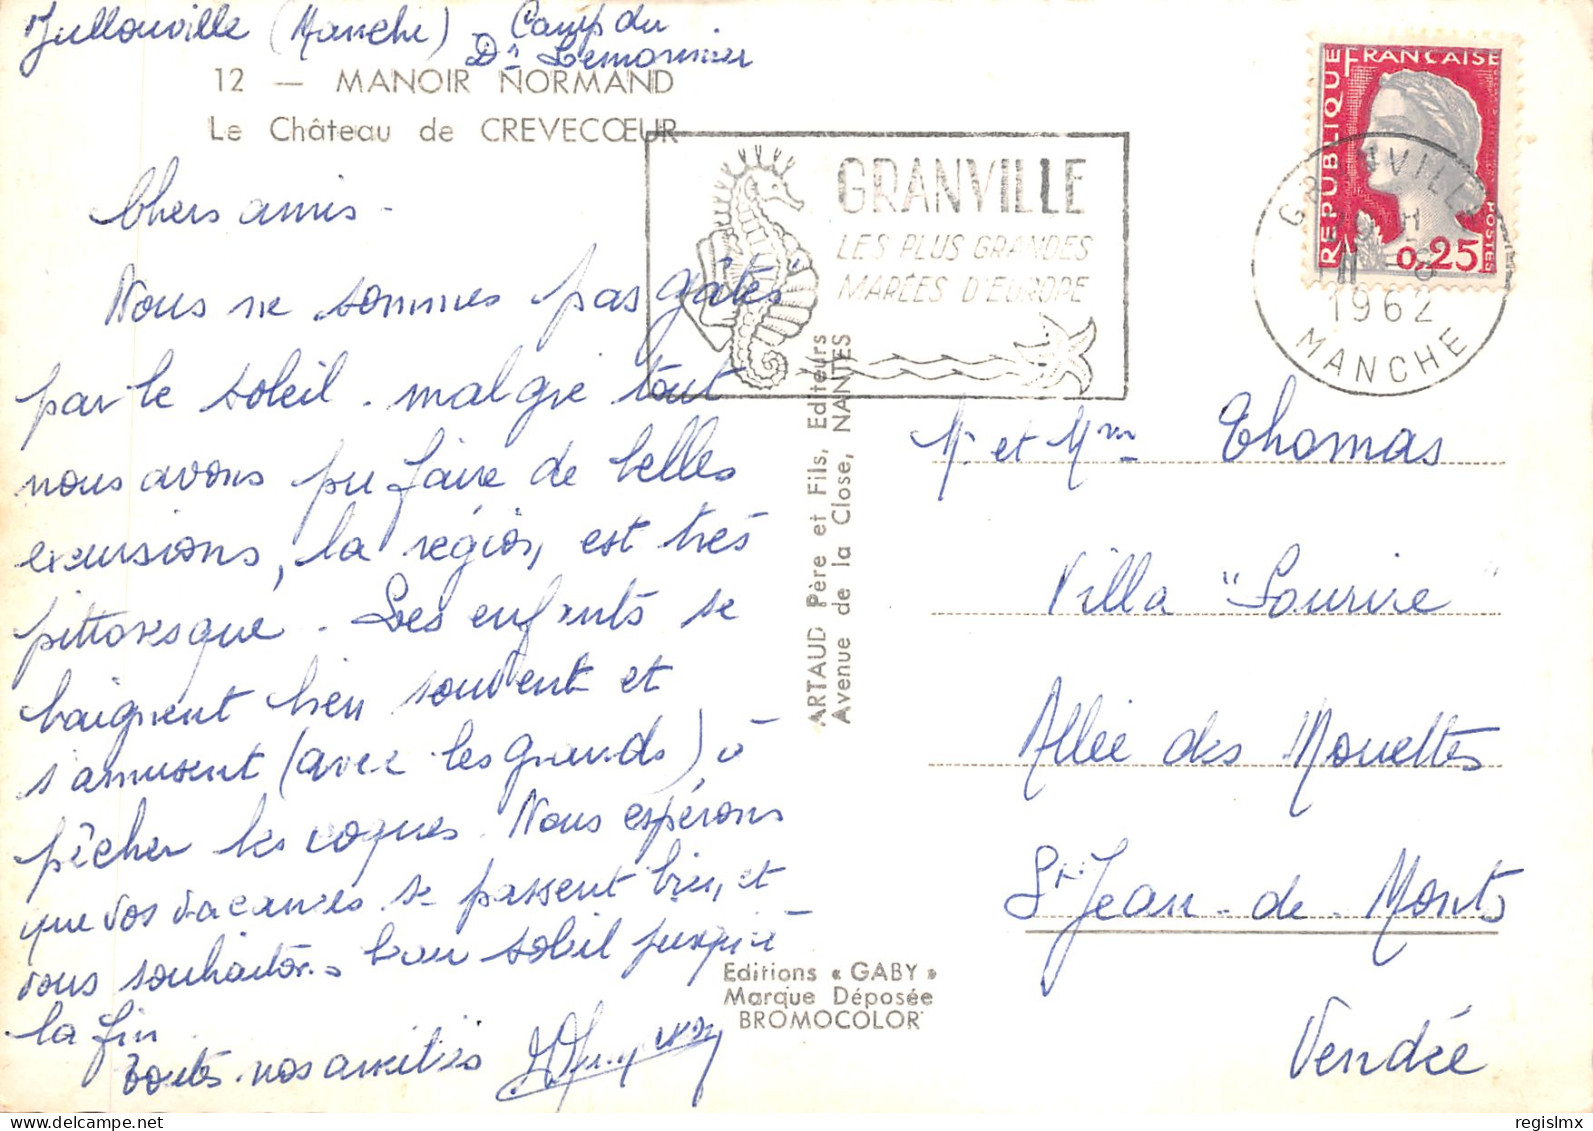 Jullouville (Manche) Camp du
Dr Lemonnier
12 — MANOIR NORMAND
Le Château de CREVECŒUR
Chers amis -
Nous ne sommes pas gâtés
par le soleil - malgré tout
nous avons pu faire de belles
excursions, la région est très
pittoresque. Les enfants se
baignent bien souvent et
s'amusent (avec les grands) à
pêcher les coques. Nous espérons
que vos vacances se passent bien, et
vous souhaitons bon soleil jusqu'à
la fin.
Toutes nos amitiés
GRANVILLE
LES PLUS GRANDES
MARÉES D'EUROPE
REPUBLIQUE FRANCAISE
POSTES
0,25
GRANVILLE
1962
MANCHE
ARTAUD Père et Fils, Editeurs
Avenue de la Close, NANTES
Mr et Mme Thomas
Villa "Sourire"
Allée des Mouettes
St Jean-de-Monts
Vendée
Editions « GABY »
Marque Déposée
BROMOCOLOR
regislmx